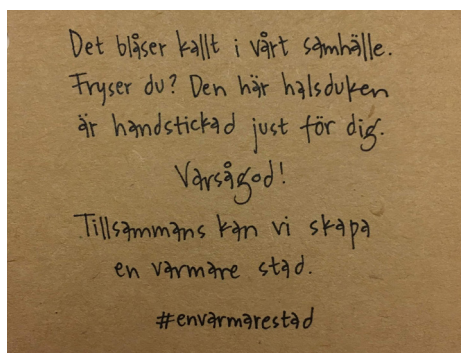 Det blåser kallt i vårt samhälle.
Fryser du? Den här halsduken
är handstickad just för dig.
Varsågod!
Tillsammans kan vi skapa
en varmare stad.
#envarmarestad